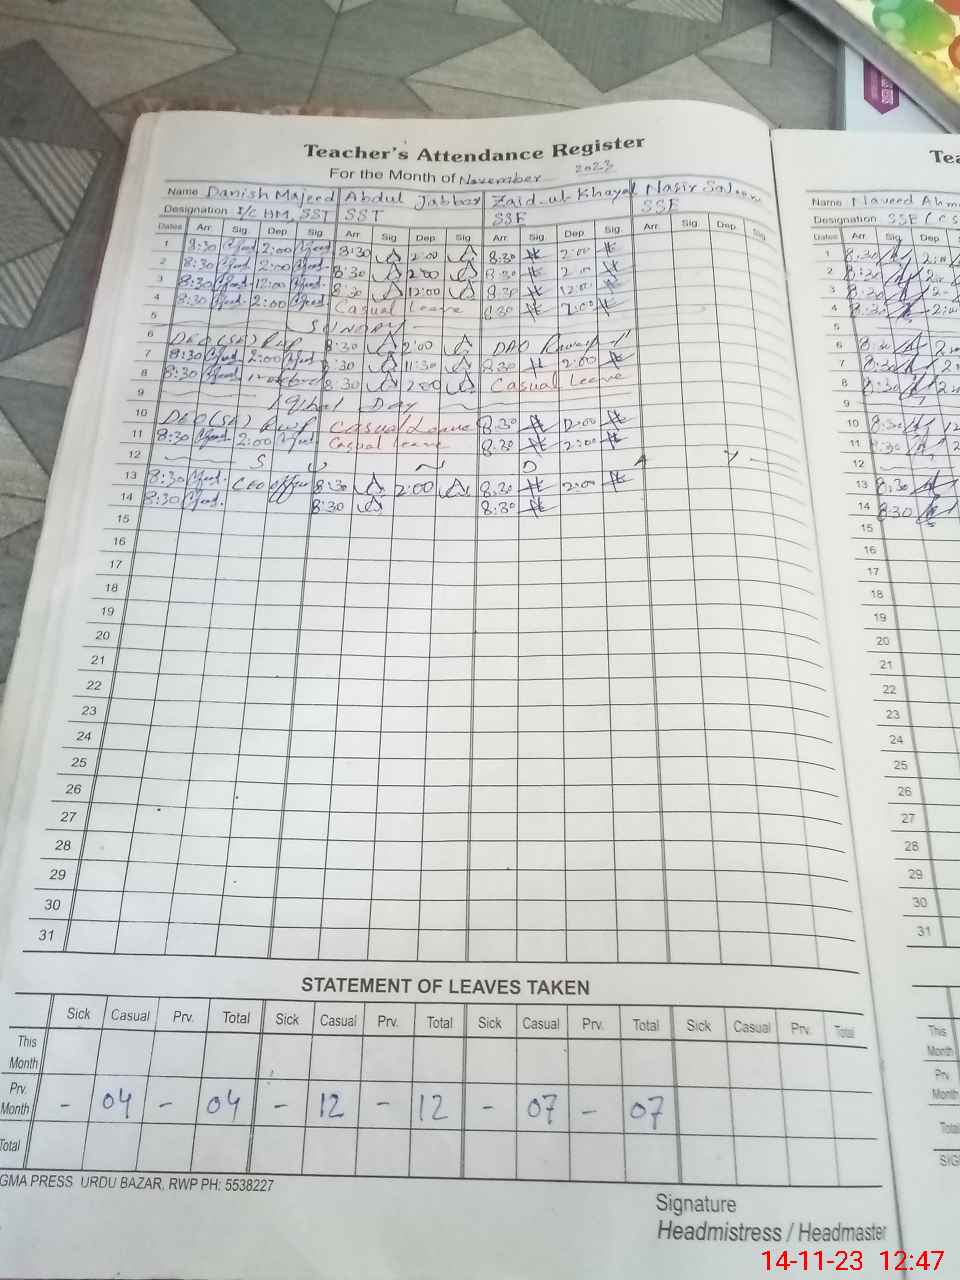 Teacher's Attendance Register
For the Month of November 2023
Name Danish Majeed Abdul Jabbar Zaid-ul-Khayal Nasir Saleem
Designation I/C HM, SST SST SSE SSE
Dates Arr. Sig. Dep. Sig. Arr. Sig. Dep. Sig. Arr. Sig. Dep. Sig. Arr. Sig. Dep. Sig.
1 8:30 2:00 8:30 2:00 8:30 2:00
2 8:30 2:00 8:30 2:00 8:30 2:00
3 8:30 12:00 8:30 12:00 8:30 12:00
4 8:30 2:00 Casual Leave 8:30 2:00
5 SUNDAY
6 DEO(SE) RWP 8:30 2:00 DAO
7 8:30 2:00 8:30 11:30 8:30 2:00
8 8:30 8:30 2:00 Casual Leave
9 Iqbal Day
10 DEO(SE) RWP Casual Leave 8:30 12:00
11 8:30 2:00 Casual Leave 8:30 2:00
12 S U N D A Y
13 8:30 CEO office 8:30 2:00 8:30 2:00
14 8:30 8:30 8:30
15
16
17
18
19
20
21
22
23
24
25
26
27
28
29
30
31
STATEMENT OF LEAVES TAKEN
Sick Casual Prv. Total Sick Casual Prv. Total Sick Casual Prv. Total Sick Casual Prv. Total
This Month
Prv. Month - 04 - 04 - 12 - 12 - 07 - 07
Total
GMA PRESS URDU BAZAR, RWP PH: 5538227
Signature
Headmistress / Headmaster
Tea
Name Naveed Ahm
Designation SSE (CS
Dates Arr. Sig. Dep. S
1 8:30
2 8:30
3 8:30
4 8:30
5
6 8:30
7 8:30
8 8:30
9
10 8:30
11 8:30
12
13 8:30
14 8:30
15
16
17
18
19
20
21
22
23
24
25
26
27
28
29
30
31
This Month
Prv. Month
Total
SIG
14-11-23 12:47